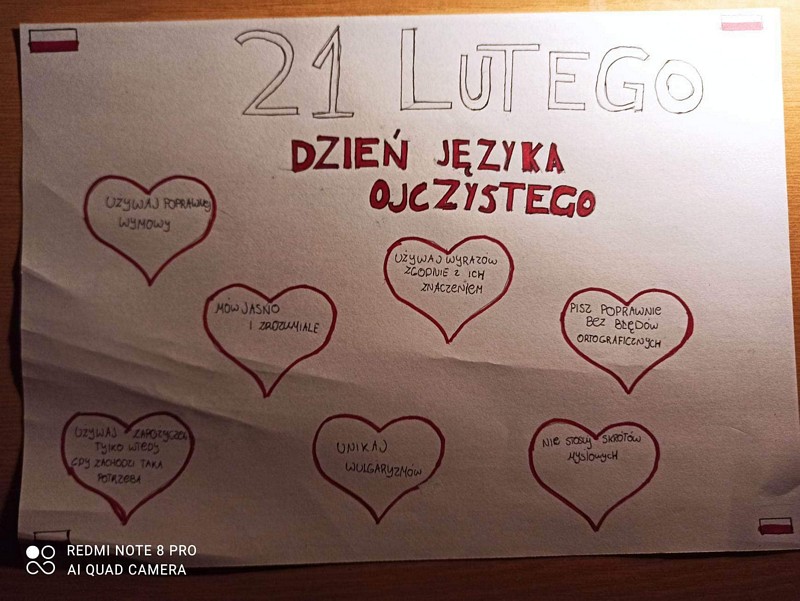 21 LUTEGO
DZIEŃ JĘZYKA
OJCZYSTEGO
UŻYWAJ POPRAWNEJ
WYMOWY
MÓW JASNO
I ZROZUMIALE
UŻYWAJ WYRAZÓW
ZGODNIE Z ICH
ZNACZENIEM
PISZ POPRAWNIE
BEZ BŁĘDÓW
ORTOGRAFICZNYCH
UŻYWAJ ZAPOŻYCZEŃ
TYLKO WTEDY
GDY ZACHODZI TAKA
POTRZEBA
UNIKAJ
WULGARYZMÓW
NIE STOSUJ SKRÓTÓW
MYŚLOWYCH
REDMI NOTE 8 PRO
AI QUAD CAMERA